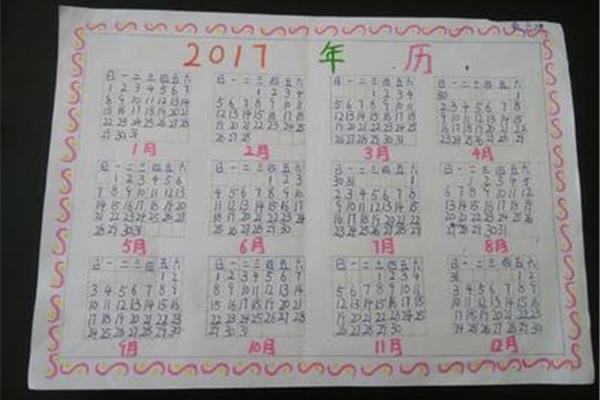 2017 年 历
日 一 二 三 四 五 六
1 2 3 4 5 6 7
8 9 10 11 12 13 14
15 16 17 18 19 20 21
22 23 24 25 26 27 28
29 30 31
1月
日 一 二 三 四 五 六
1 2 3 4
5 6 7 8 9 10 11
12 13 14 15 16 17 18
19 20 21 22 23 24 25
26 27 28
2月
日 一 二 三 四 五 六
1 2 3 4
5 6 7 8 9 10 11
12 13 14 15 16 17 18
19 20 21 22 23 24 25
26 27 28 29 30 31
3月
日 一 二 三 四 五 六
30 1
2 3 4 5 6 7 8
9 10 11 12 13 14 15
16 17 18 19 20 21 22
23 24 25 26 27 28 29
4月
日 一 二 三 四 五 六
1 2 3 4 5 6
7 8 9 10 11 12 13
14 15 16 17 18 19 20
21 22 23 24 25 26 27
28 29 30 31
5月
日 一 二 三 四 五 六
1 2 3
4 5 6 7 8 9 10
11 12 13 14 15 16 17
18 19 20 21 22 23 24
25 26 27 28 29 30
6月
日 一 二 三 四 五 六
30 31 1
2 3 4 5 6 7 8
9 10 11 12 13 14 15
16 17 18 19 20 21 22
23 24 25 26 27 28 29
7月
日 一 二 三 四 五 六
1 2 3 4 5
6 7 8 9 10 11 12
13 14 15 16 17 18 19
20 21 22 23 24 25 26
27 28 29 30 31
8月
日 一 二 三 四 五 六
1 2
3 4 5 6 7 8 9
10 11 12 13 14 15 16
17 18 19 20 21 22 23
24 25 26 27 28 29 30
9月
日 一 二 三 四 五 六
1 2 3 4 5 6 7
8 9 10 11 12 13 14
15 16 17 18 19 20 21
22 23 24 25 26 27 28
29 30 31
10月
日 一 二 三 四 五 六
1 2 3 4
5 6 7 8 9 10 11
12 13 14 15 16 17 18
19 20 21 22 23 24 25
26 27 28 29 30
11月
日 一 二 三 四 五 六
31 1 2
3 4 5 6 7 8 9
10 11 12 13 14 15 16
17 18 19 20 21 22 23
24 25 26 27 28 29 30
12月